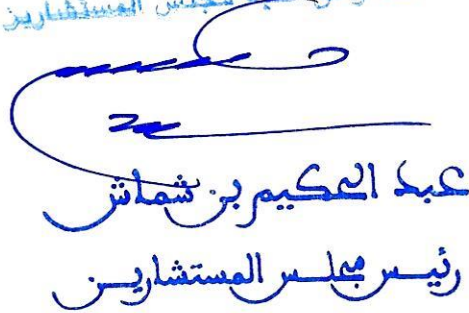 مجلس المستشارين
عبد الحكيم بن شماش
رئيس مجلس المستشارين